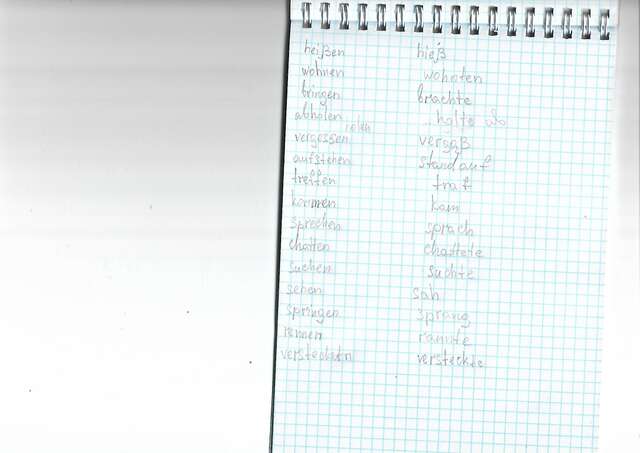 heißen hieß
wohnen wohnten
bringen brachte
abholen holte ab
vergessen vergaß
aufstehen stand auf
treffen traf
kommen kam
sprechen sprach
chatten chattete
suchen suchte
sehen sah
springen sprang
rennen rannte
verstecken versteckte